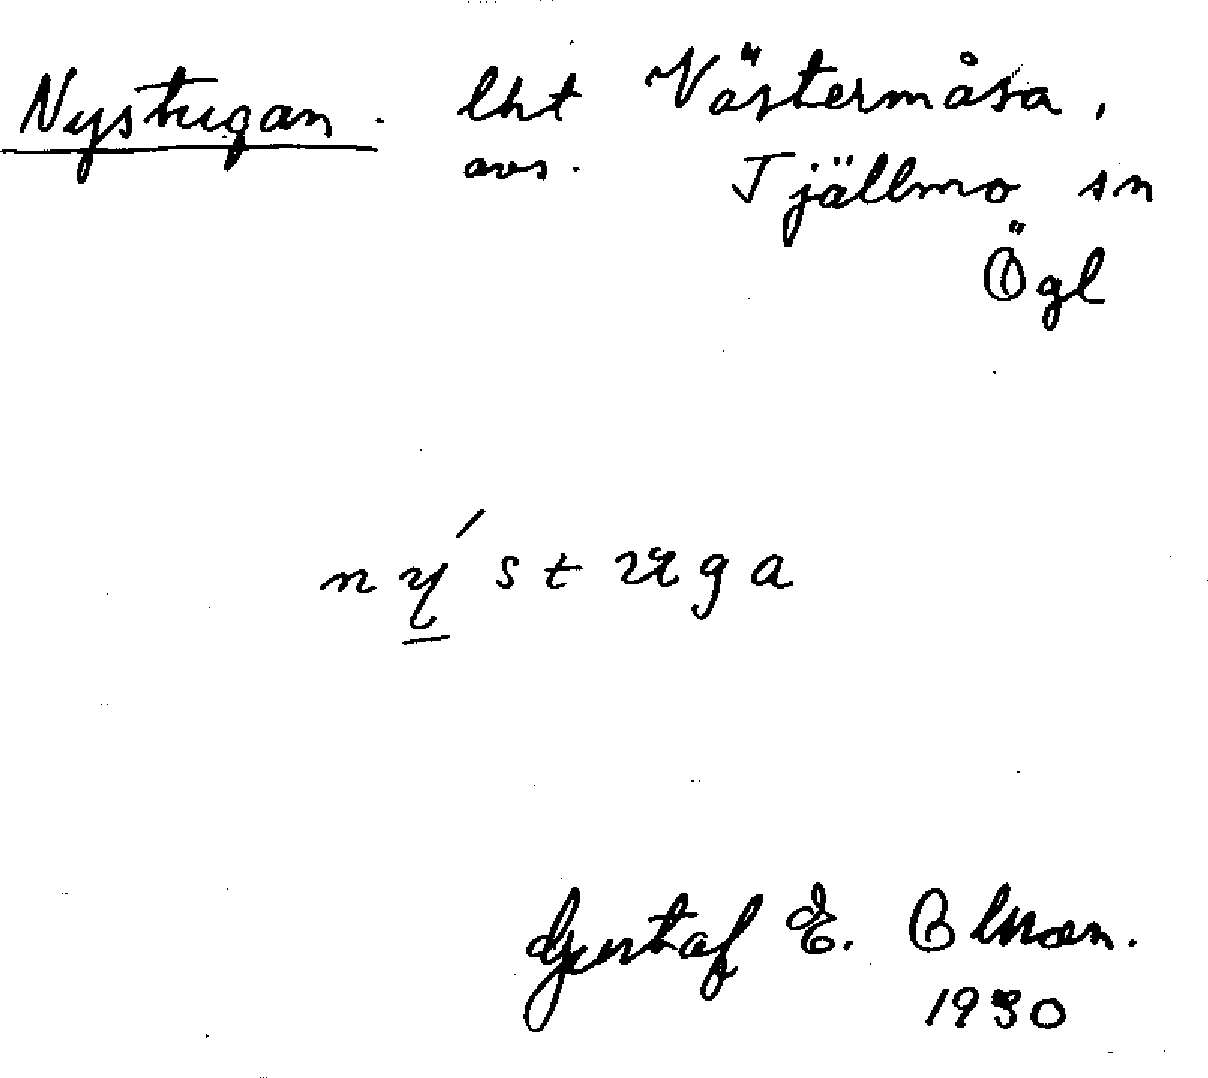 Nystugan. lht Västermåsa,
avs. Tjällmo sn
Ögl
ný̲stuga
Gustaf E. Olsson.
1930